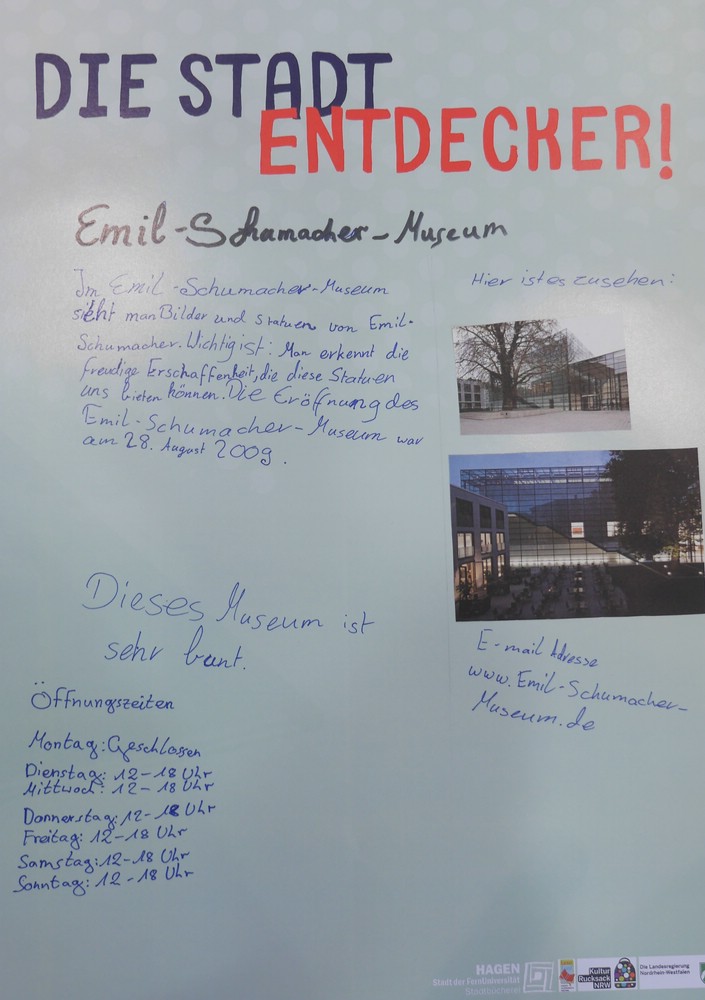 DIE STADT
ENTDECKER!
Emil-Schumacher-Museum
Im Emil-Schumacher-Museum
sieht man Bilder und Statuen von Emil-
Schumacher. Wichtig ist: Man erkennt die
freudige Erschaffenheit, die diese Statuen
uns bieten können. Die Eröffnung des
Emil-Schumacher-Museum war
am 28. August 2009.
Hier ist es zusehen:
Dieses Museum ist
sehr bunt.
E-mail Adresse
www.Emil-Schumacher-
Museum.de
Öffnungszeiten
Montag: Geschlossen
Dienstag: 12-18 Uhr
Mittwoch: 12-18 Uhr
Donnerstag: 12-18 Uhr
Freitag: 12-18 Uhr
Samstag: 12-18 Uhr
Sonntag: 12-18 Uhr
HAGEN
Stadt der FernUniversität
Stadtbücherei
Kultur
Rucksack
NRW
Die Landesregierung
Nordrhein-Westfalen